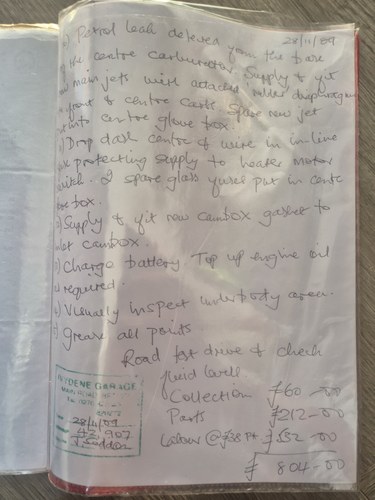 Petrol leak detered from the base 28/11/09
the centre carburettor. Supply & fit
main jets with attached rubber diaphragm
front & centre carbs. Spare new jet
into centre glove box.
Drop dash centre & wire in in-line
protecting supply to heater motor
switch. 2 spare glass fuses put in centre
box.
Supply & fit new cambox gasket to
cambox.
Charge battery Top up engine oil
required.
Visually inspect underbody area.
Grease all points
Road test drive & check
fluid levels
Collection £60-00
Parts £212-00
Labour @ £38 PH £532-00
£ 804-00
DENE GARAGE
28/11/09
42,907